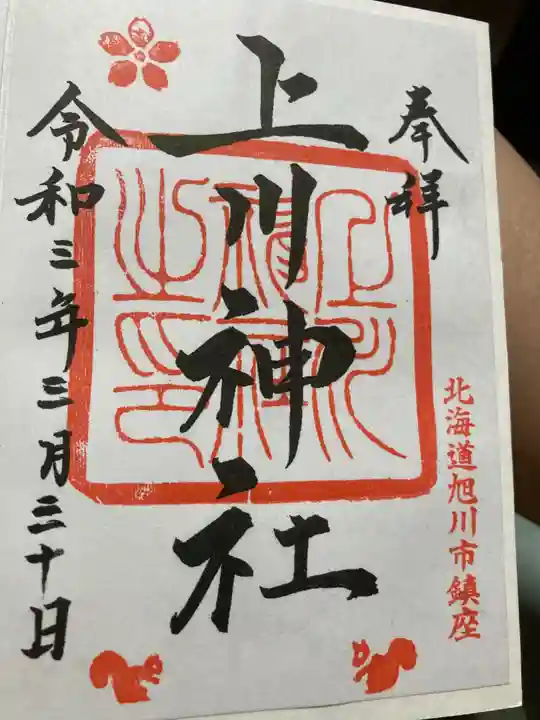 奉拝
北海道旭川市鎮座
上川神社
令和三年三月三十日